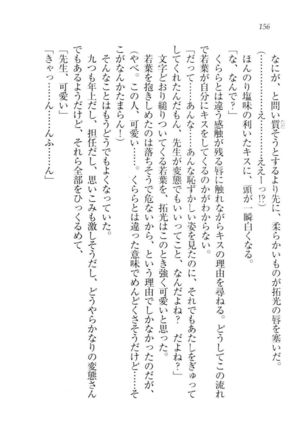 156
なにが、と問い質そうとするより先に、柔らかいものが拓光の唇を塞いだ。
(…………え……え……ええーっ!?)
ほんのり塩味の利いたキスに、頭が一瞬白くなる。
「な、なんで？」
くららとは違う感触が残る唇に触れながらキスの理由を尋ねる。どうしてこの流れ
で若葉が自分にキスをしてくるのかがわからない。
「だって……あんな……あんな恥ずかしい姿を見たのに、それでもあたしをぎゅって
してくれたんだもん、先生が変態でもいいってこと、なんだよね？　だよね？」
文字どおり縋りついてくる若葉を、拓光はこのとき強く可愛いと思った。
若葉を抱きしめたのは落ちそうで危ないから、という理由でしかなかったのだが、
(やべ。この人、可愛い……。くららとは違った意味でめんどくさそうだけど……そ
こがなんかたまらん！)
そんなことはもうどうでもよくなっていた。
九つも年上だし、担任だし、思いこみも激しそうだし、どうやらかなりの変態さん
でもあるようだけど、それら全部をひっくるめて、
「先生、可愛い」
「きゃっ……ん……んふ……ん」